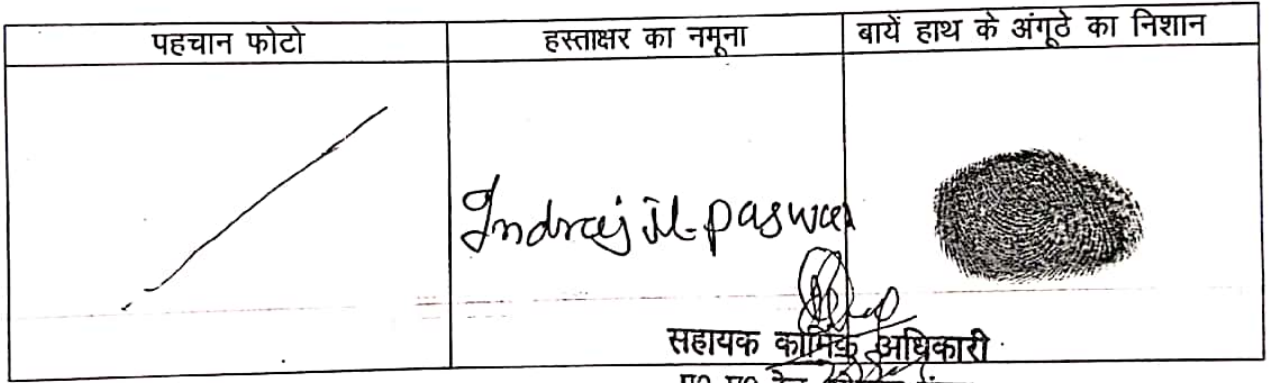 पहचान फोटो हस्ताक्षर का नमूना बायें हाथ के अंगूठे का निशान
Indrajit Paswan
सहायक कार्मिक अधिकारी